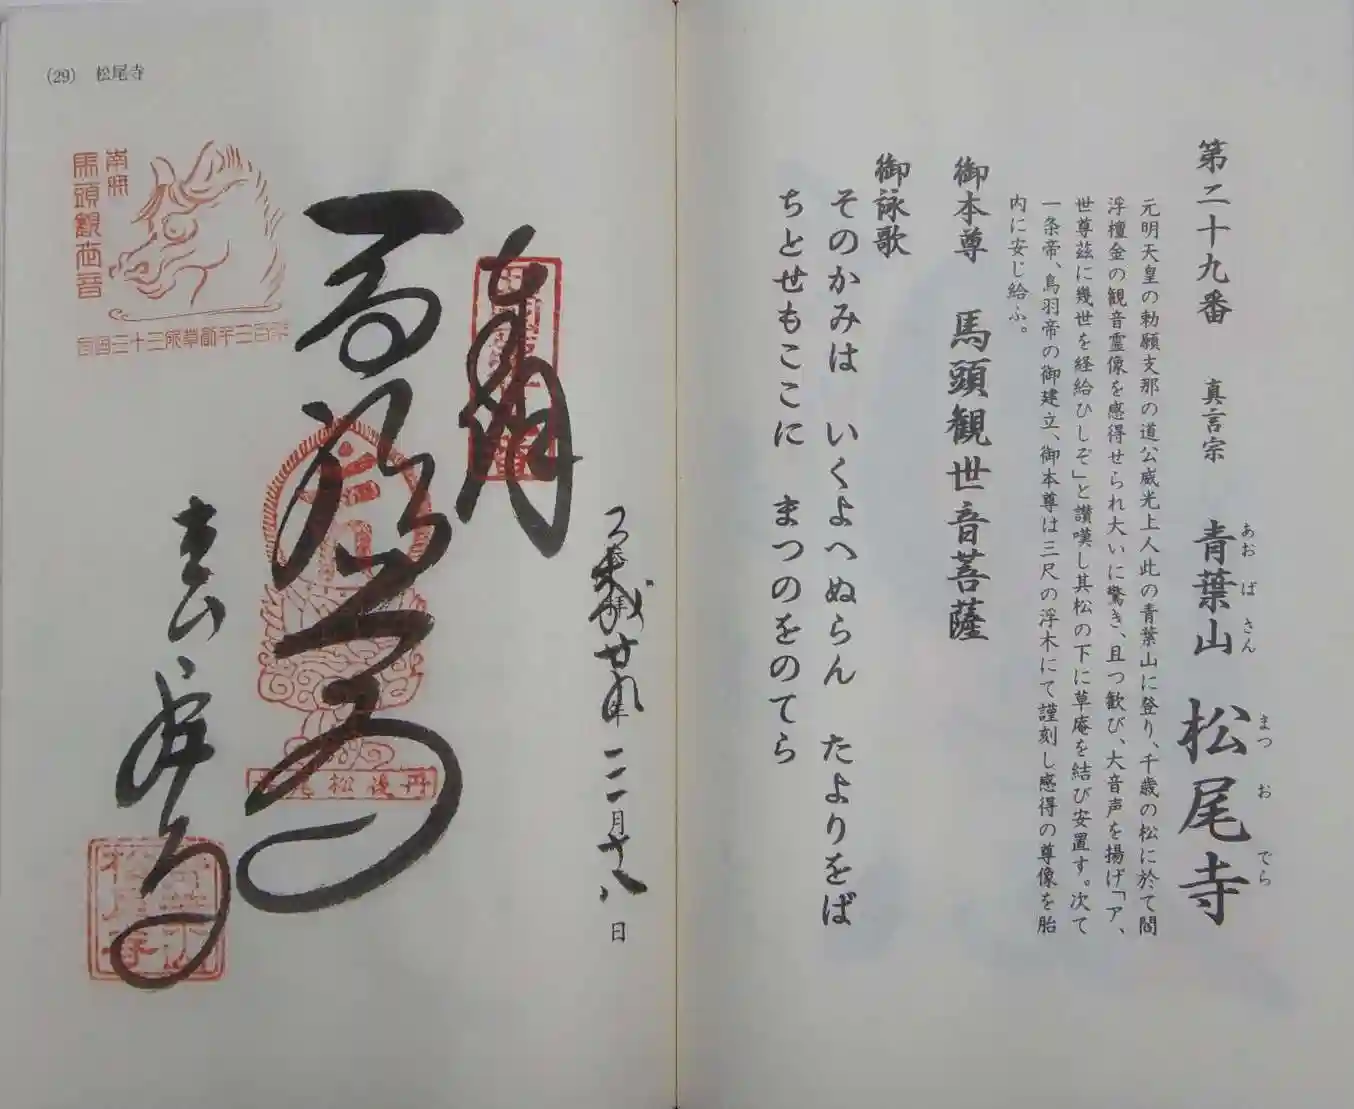 第二十九番 真言宗 青葉山 松尾寺
あおばさん まつおでら
元明天皇の勅願支那の道公威光上人此の青葉山に登り、千歳の松に於て閻
浮檀金の観音霊像を感得せられ大いに驚き、且つ歓び、大音声を揚げ「ア、
世尊茲に幾世を経給ひしぞ」と讃嘆し其松の下に草庵を結び安置す。次て
一条帝、鳥羽帝の御建立、御本尊は三尺の浮木にて謹刻し感得の尊像を胎
内に安じ給ふ。
御本尊 馬頭観世音菩薩
御詠歌
そのかみは いくよへぬらん たよりをば
ちとせもここに まつのをのてら
(29) 松尾寺
奉拝
年 二月十八日
南無
馬頭観世音
西国三十三所草創千三百年
丹後松尾寺